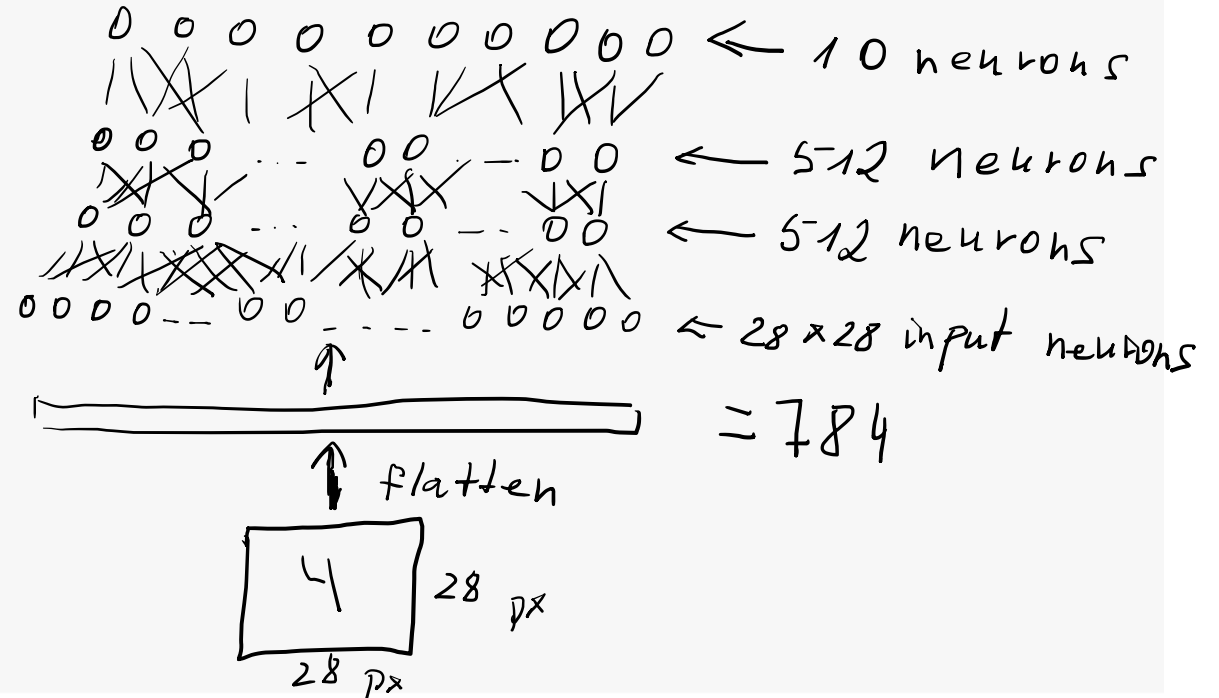 10 neurons
512 neurons
512 neurons
28x28 input neurons
=784
flatten
4
28 px
28 px